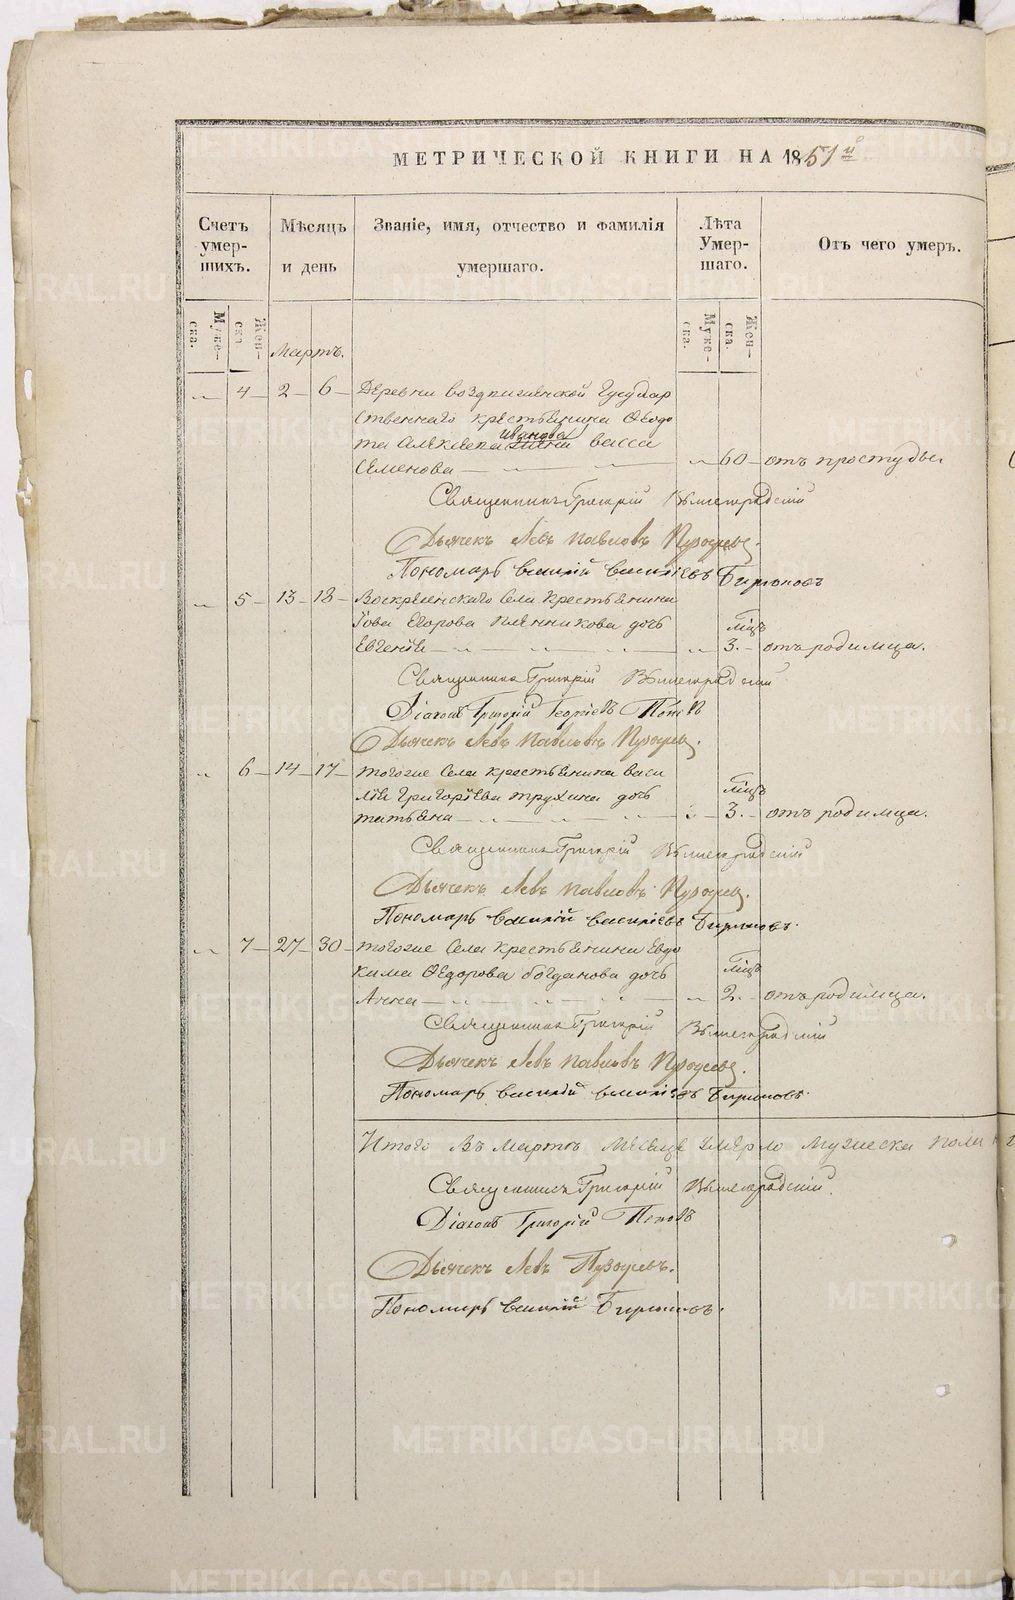 МЕТРИЧЕСКОЙ КНИГИ НА 1851й
Счетъ умер- шихъ.
Мѣсяцъ и день
Званіе, имя, отчество и фамилія умершаго.
Лѣта Умер- шаго.
Отъ чего умеръ.
Муже- ска.
Жен- ска
Муже- ска.
Жен- ска.
Мартъ.
„ 4 2 6 Деревни Воздвиженской Государ
ственнаго крестьянина Ѳедо
та Алексѣева Васса
Семенова „ 60 отъ простуды.
Священникъ Григорій Вышеградскій
Дьячекъ Левъ Павловъ
Пономарь Василій Васильевъ Бирюковъ
„ 5 13 18 Воскресенскаго Села Крестьянина
Іова Егорова Плѣнникова дочь
Евгенія „ 3. мѣц отъ родимца.
Священникъ Григорій Вышеградскій
Діаконъ Григорій Георгіевъ Поповъ
Дьячекъ Левъ Павловъ
„ 6 14 17 тогоже Села крестьянина Васи
лія Григоріева Трухина дочь
татьяна „ 3. мѣц отъ родимца.
Священникъ Григорій Вышеградскій
Дьячекъ Левъ Павловъ
Пономарь Василій Васильевъ Бирюковъ.
„ 7 27 30 тогоже Села крестьянина Евдо
кима Ѳедорова Богданова дочь
Анна „ 2. мѣц отъ родимца.
Священникъ Григорій Вышеградскій
Дьячекъ Левъ Павловъ
Пономарь Василій Васильевъ Бирюковъ.
Итого въ Мартѣ Месяце Умерло Мужеска пола
Священникъ Григорій Вышеградскій.
Діаконъ Григорій Поповъ
Дьячекъ Левъ
Пономарь Василій Бирюковъ.
METRIKI.GASO-URAL.RU